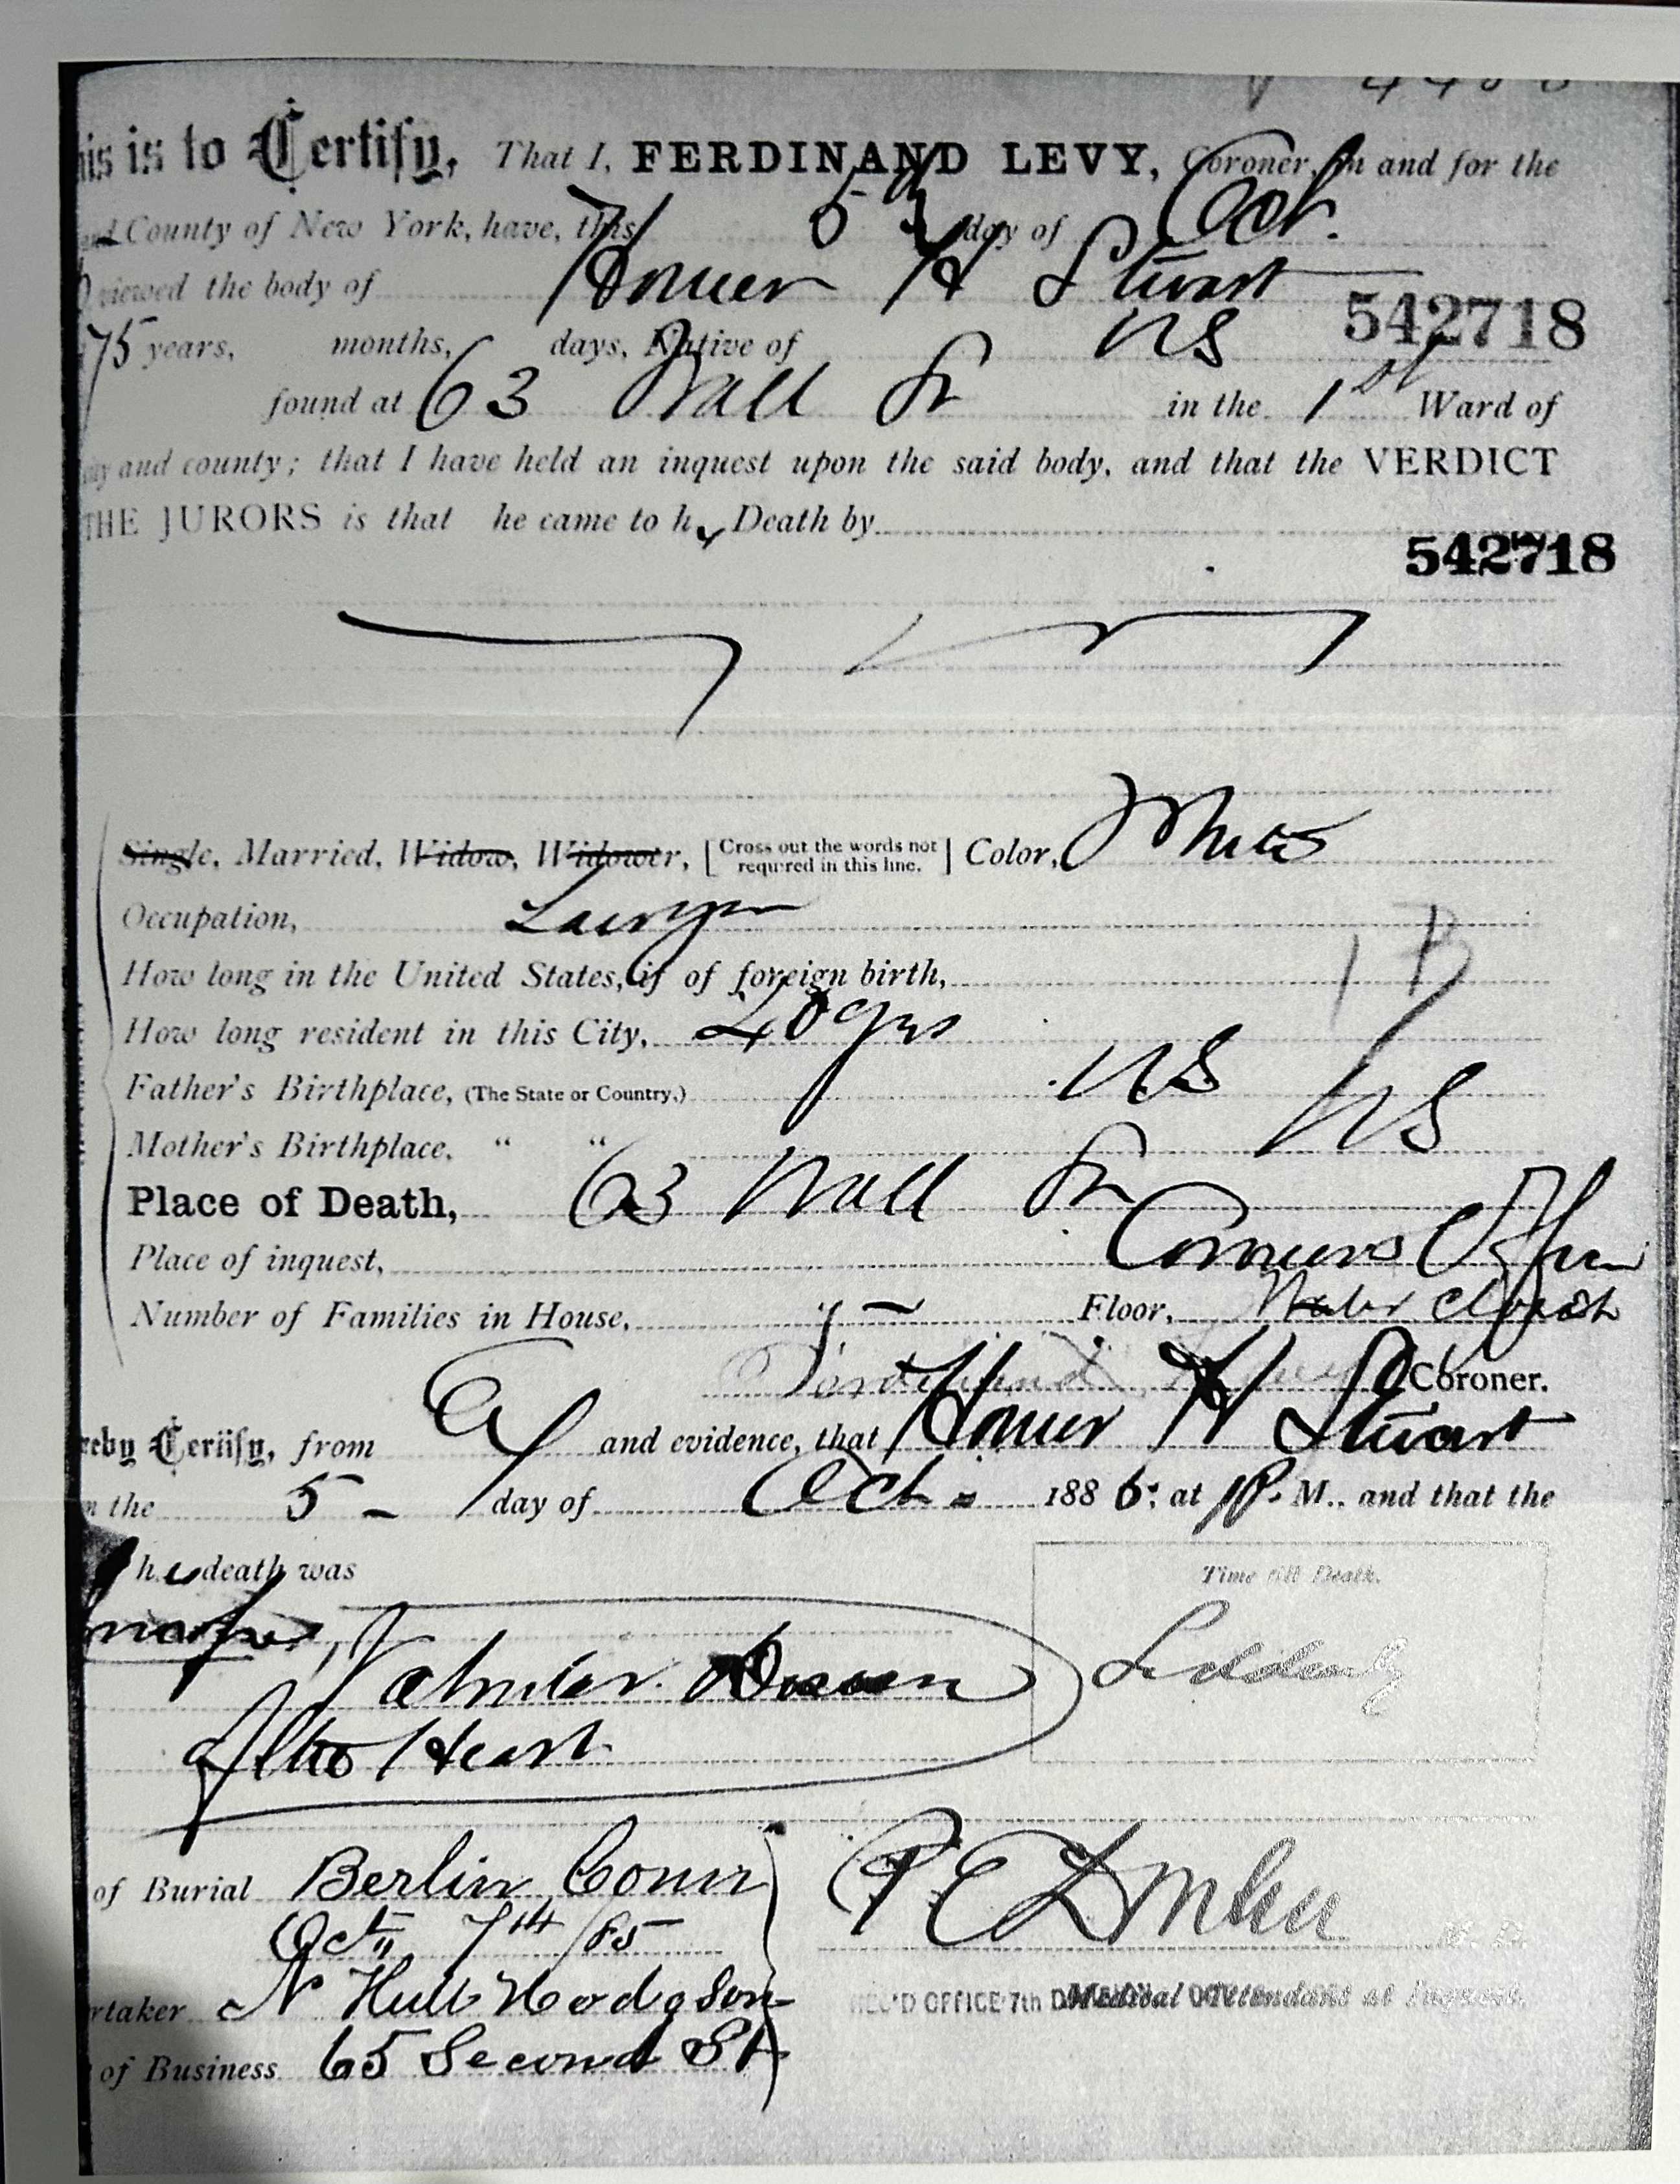 his is to Certify, That I, FERDINAND LEVY, Coroner, in and for the
and County of New York, have, this 5 day of Oct.
viewed the body of Homer H Stuart
542718
75 years, months, days, Native of US
found at 63 Wall St in the 1st Ward of
and county; that I have held an inquest upon the said body, and that the VERDICT
THE JURORS is that he came to his Death by
542718
Single, Married, Widow, Widower, [Cross out the words not required in this line.] Color, White
Occupation, Lawyer
How long in the United States, if of foreign birth,
How long resident in this City, 40 yrs
Father's Birthplace, (The State or Country,) US
Mother's Birthplace, " " US
Place of Death, 63 Wall St
Place of inquest, Coroners Office
Number of Families in House, Floor, Water Closet
Ferdinand Levy Coroner.
reby Certify, from and evidence, that Homer H Stuart
n the 5 - day of Oct. 1885; at 1 P. M., and that the
his death was
Time till Death.
Valvular Disease
Suddenly
of the Heart
of Burial Berlin Conn
Oct 7th /85
M. D.
rtaker N Hull Hodgson
REC'D OFFICE 7th Medical Attendant at Inquest.
of Business 65 Second St